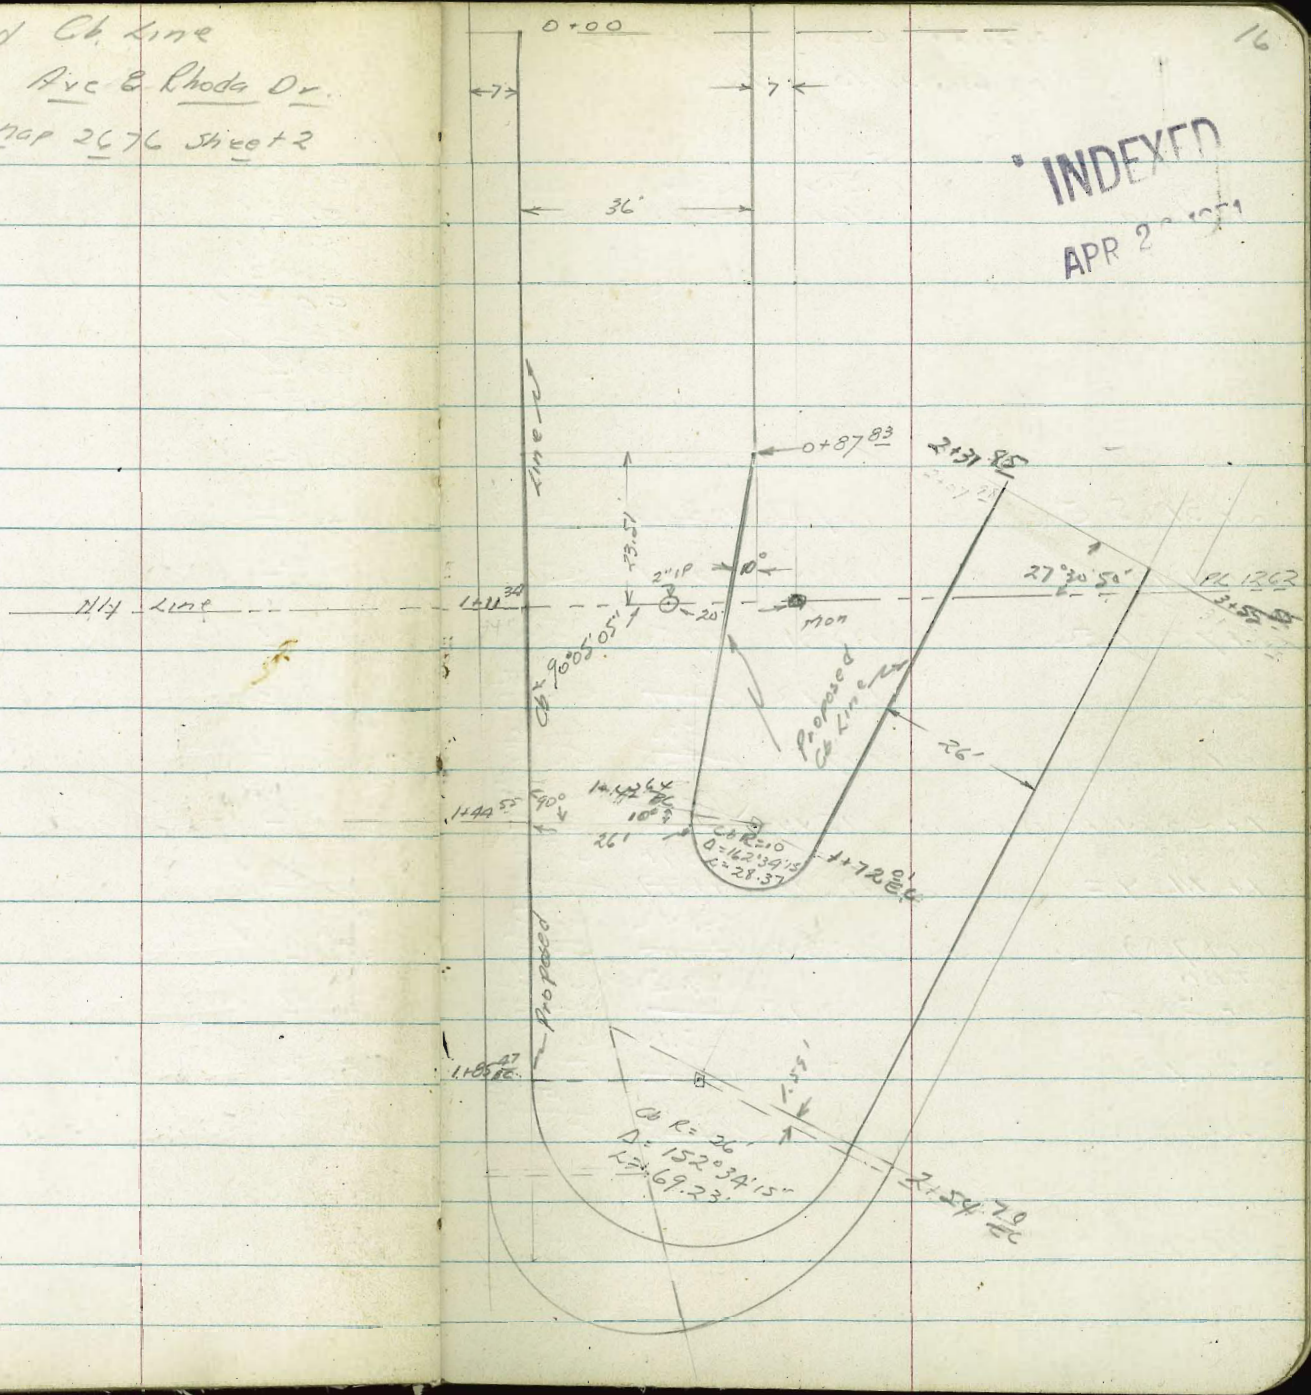 Cb. Line
Ave & Rhoda Dr.
map 2676 Sheet 2
16
0+00
7
7'
36'
INDEXED
APR 2
Line
0+87 83
2+31 85
23.51'
10°
2" IP
20'
Mon
27°30'50"
PL 1262
N'ly Line
1+11 34
Cb
90°05'05"
Proposed
Cb Line
26'
1+44 55
90°
1+42 64
BC
10°
26'
Cb R=10
Δ=162°34'15"
L=28.37
1+72 01
EC
Proposed
1+85 47
BC
1.59'
Cb R= 26'
Δ= 152°34'15"
L= 69.23'
2+54 70
EC